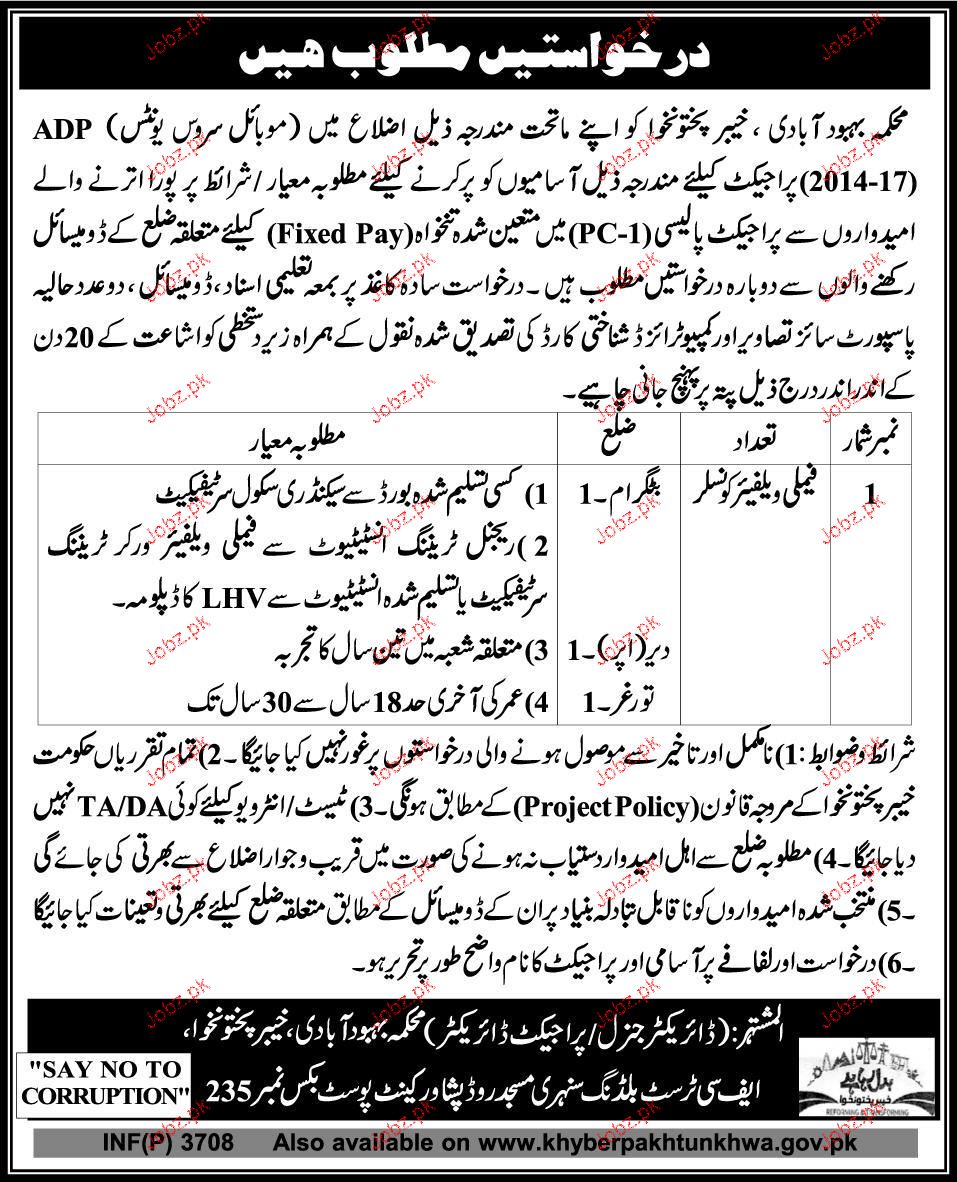 درخواستیں مطلوب ھیں
محکمہ بہبود آبادی ، خیبر پختونخوا کو اپنے ماتحت مندرجہ ذیل اضلاع میں (موبائل سروس یونٹس) ADP
(2014-17) پراجیکٹ کیلئے مندرجہ ذیل آسامیوں کو پر کرنے کیلئے مطلوبہ معیار/شرائط پر پورا اترنے والے
امیدواروں سے پراجیکٹ پالیسی (PC-1) میں متعین شدہ تنخواہ (Fixed Pay) کیلئے متعلقہ ضلع کے ڈومیسائل
رکھنے والوں سے دوبارہ درخواستیں مطلوب ہیں۔ درخواست سادہ کاغذ پر بمعہ تعلیمی اسناد، ڈومیسائل ، دو عدد حالیہ
پاسپورٹ سائز تصاویر اور کمپیوٹرائزڈ شناختی کارڈ کی تصدیق شدہ نقول کے ہمراہ زیر دستخطی کو اشاعت کے 20 دن
کے اندر اندر درج ذیل پتہ پر پہنچ جانی چاہیے۔
نمبر شمار تعداد ضلع مطلوبہ معیار
1 فیملی ویلفیئر کونسلر بٹگرام۔1 1) کسی تسلیم شدہ بورڈ سے سیکنڈری سکول سرٹیفیکیٹ
2) ریجنل ٹریننگ انسٹیٹیوٹ سے فیملی ویلفیئر ورکر ٹریننگ
سرٹیفیکیٹ یا تسلیم شدہ انسٹیٹیوٹ سے LHV کا ڈپلومہ۔
دیر (اپر)۔1 3) متعلقہ شعبہ میں تین سال کا تجربہ
تورغر۔1 4) عمر کی آخری حد 18 سال سے 30 سال تک
شرائط و ضوابط: 1) نامکمل اور تاخیر سے موصول ہونے والی درخواستوں پر غور نہیں کیا جائیگا۔ 2) تمام تقرریاں حکومت
خیبر پختونخوا کے مروجہ قانون (Project Policy) کے مطابق ہونگی۔ 3) ٹیسٹ/انٹرویو کیلئے کوئی TA/DA نہیں
دیا جائیگا۔ 4) مطلوبہ ضلع سے اہل امیدوار دستیاب نہ ہونے کی صورت میں قریب و جوار اضلاع سے بھرتی کی جائے گی
۔5) منتخب شدہ امیدواروں کو ناقابل تبادلہ بنیاد پر ان کے ڈومیسائل کے مطابق متعلقہ ضلع کیلئے بھرتی و تعینات کیا جائیگا
۔6) درخواست اور لفافے پر آسامی اور پراجیکٹ کا نام واضح طور پر تحریر ہو۔
المشتہر: (ڈائریکٹر جنرل / پراجیکٹ ڈائریکٹر) محکمہ بہبود آبادی، خیبر پختونخوا،
ایف سی ٹرسٹ بلڈنگ سنہری مسجد روڈ پشاور کینٹ پوسٹ بکس نمبر 235
"SAY NO TO
CORRUPTION"
خیبر پختونخوا
REFORMING & TRANSFORMING
INF(P) 3708 Also available on www.khyberpakhtunkhwa.gov.pk
Jobz.pk